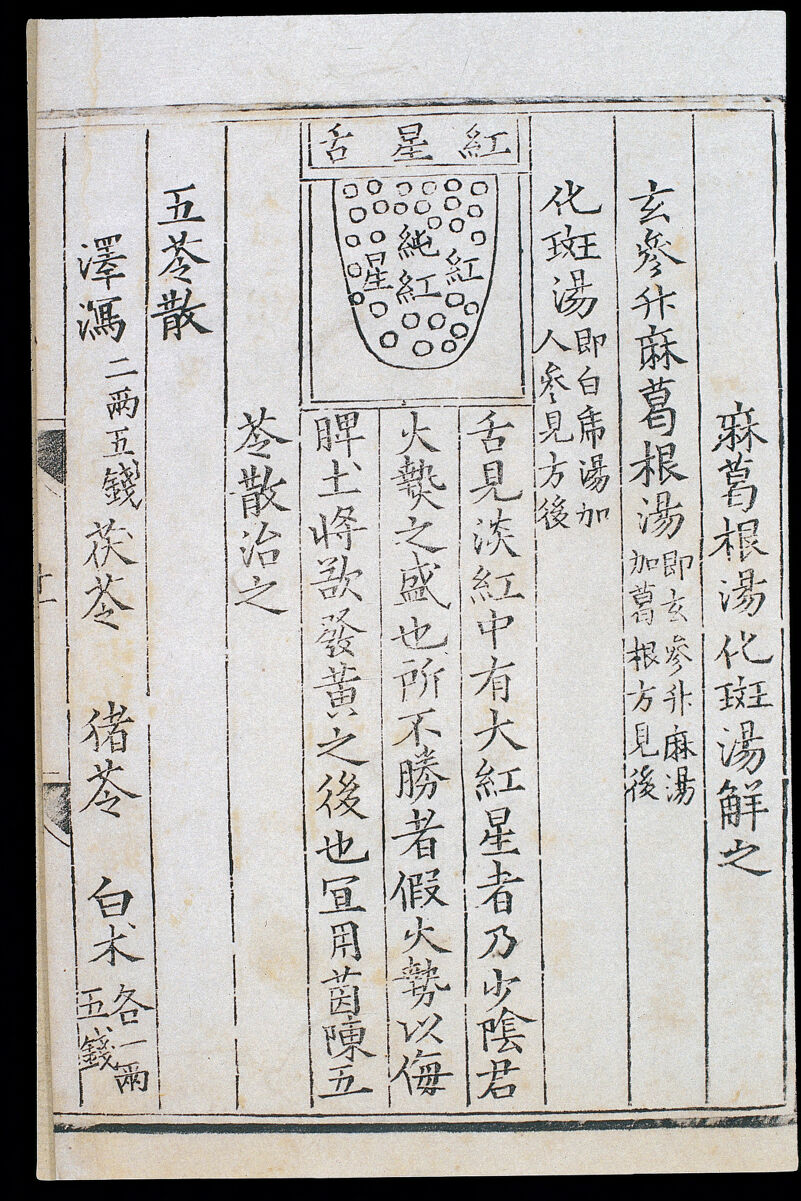 麻葛根湯化斑湯解之
玄參升麻葛根湯即玄參升麻湯
加葛根方見後
化斑湯即白虎湯加
人參見方後
紅星舌
紅
純紅
星
舌見淡紅中有大紅星者乃少陰君
火熱之盛也所不勝者假火勢以侮
脾土將欲發黃之後也宜用茵陳五
苓散治之
五苓散
澤瀉二兩五錢 茯苓 猪苓 白朮各一兩
五錢